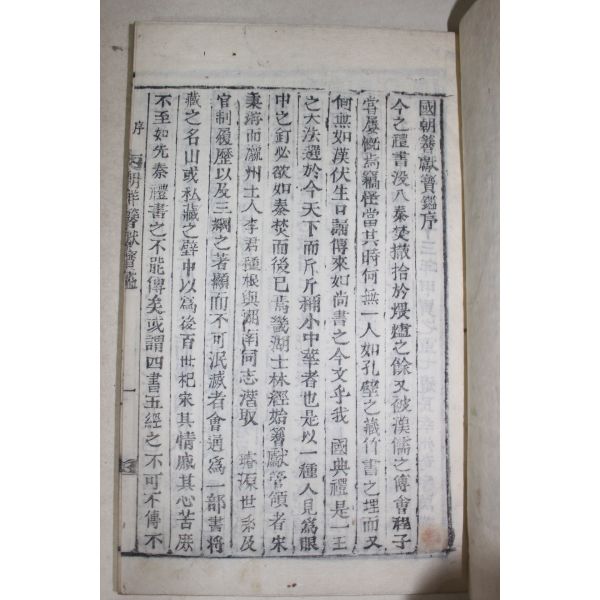 國朝簪獻寶鑑序
今之禮書沒入秦焚撤拾於煨爐之餘又被漢儒之傅會程子
嘗屢慨焉竊恠當其時何無一人如孔壁之藏竹書之埋而又
何無如漢伏生口誦傳來如尚書之今文乎我 國典禮是一王
之大法選於今天下而斤斤稱小中華者也是以一種人見爲眼
中之釘必欲如秦焚而後已焉畿湖士林經始簪獻管領者宋
秉 而瀛州士人李君種根與湖南同志潛取 璿源世系及
官制履歷以及三綱之著顯而不可泯滅者會通爲一部書將
藏之名山或私藏之壁中以爲後百世杞宋其情慼其心苦庶
不至如先秦禮書之不能傳矣或謂四書五經之不可不傳不
序 朝 簪獻寶鑑 一